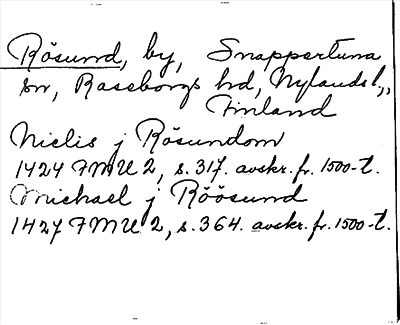 Rösund, by, Snappertuna
sn, Raseborgs hd, Nylands l.,
Finland
Nielis j Rösundom
1424 FMU 2, s. 317. avskr. fr. 1500-t.
Michael j Röösund
1427 FMU 2, s. 364. avskr. fr. 1500-t.